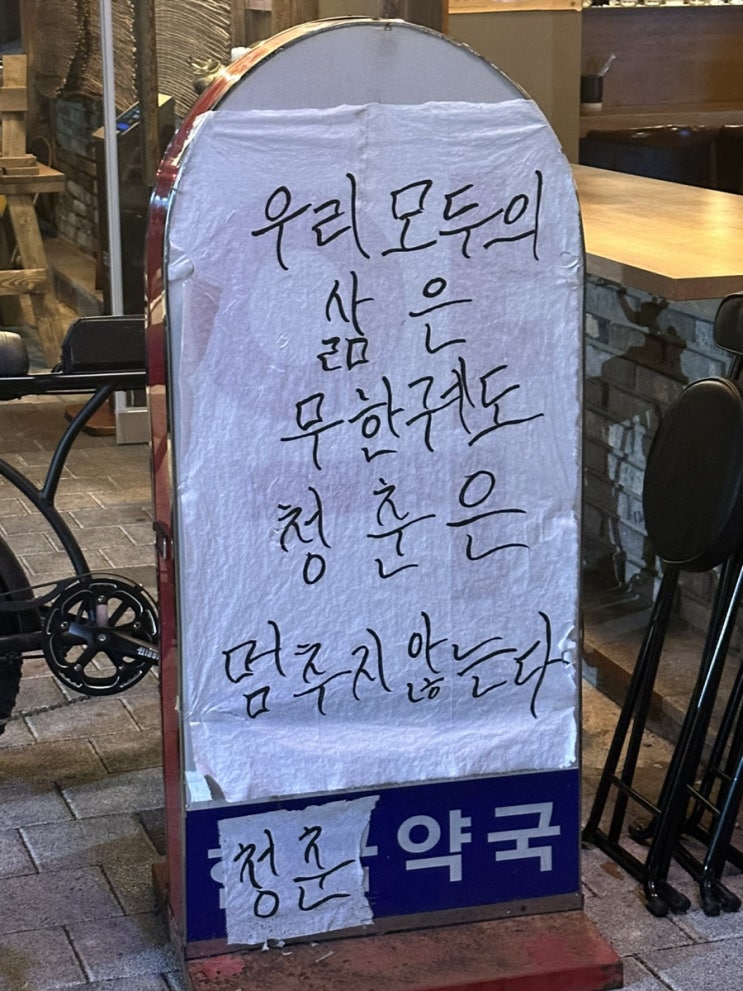 우리 모두의
삶 은
무한궤도
청 춘 은
멈추지 않는다
청춘 약국